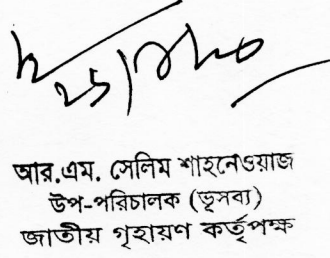 আর.এম. সেলিম শাহনেওয়াজ
উপ-পরিচালক (ভূসব্য)
জাতীয় গৃহায়ণ কর্তৃপক্ষ